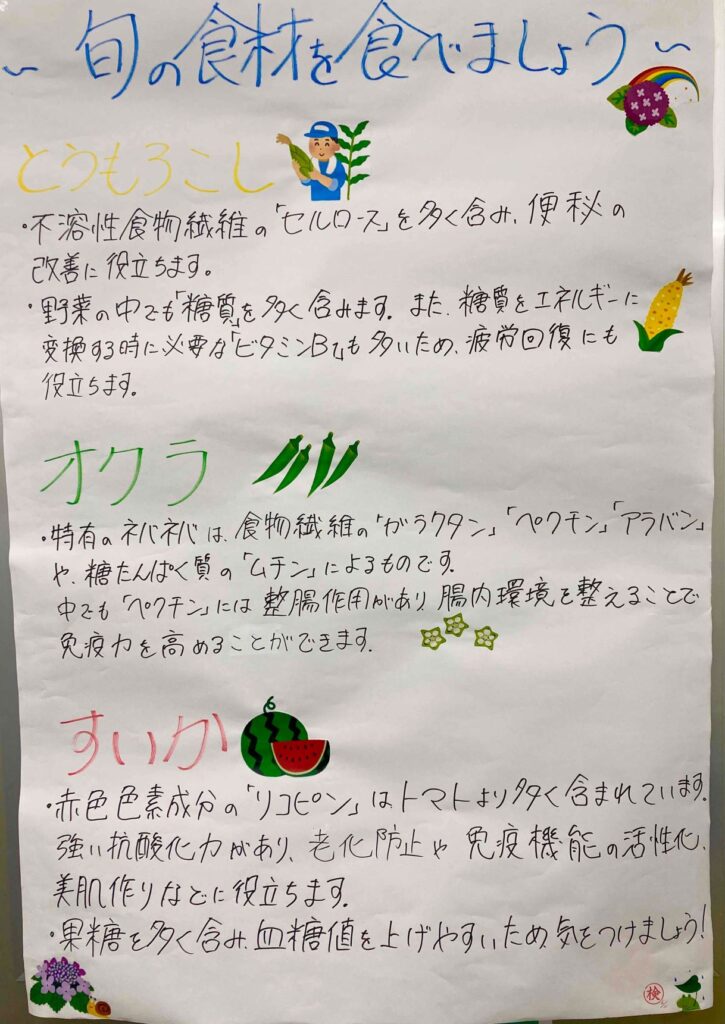 ~ 旬の食材を食べましょう ~
とうもろこし
・不溶性食物繊維の「セルロース」を多く含み、便秘の
改善に役立ちます。
・野菜の中でも「糖質」を多く含みます。また、糖質をエネルギーに
変換する時に必要な「ビタミンB1」も多いため、疲労回復にも
役立ちます。
オクラ
・特有のネバネバは、食物繊維の「ガラクタン」「ペクチン」「アラバン」
や、糖たんぱく質の「ムチン」によるものです。
中でも「ペクチン」には整腸作用があり、腸内環境を整えることで
免疫力を高めることができます。
すいか
・赤色色素成分の「リコピン」はトマトより多く含まれています。
強い抗酸化力があり、老化防止や免疫機能の活性化、
美肌作りなどに役立ちます。
・果糖を多く含み、血糖値を上げやすいため気をつけましょう!
検